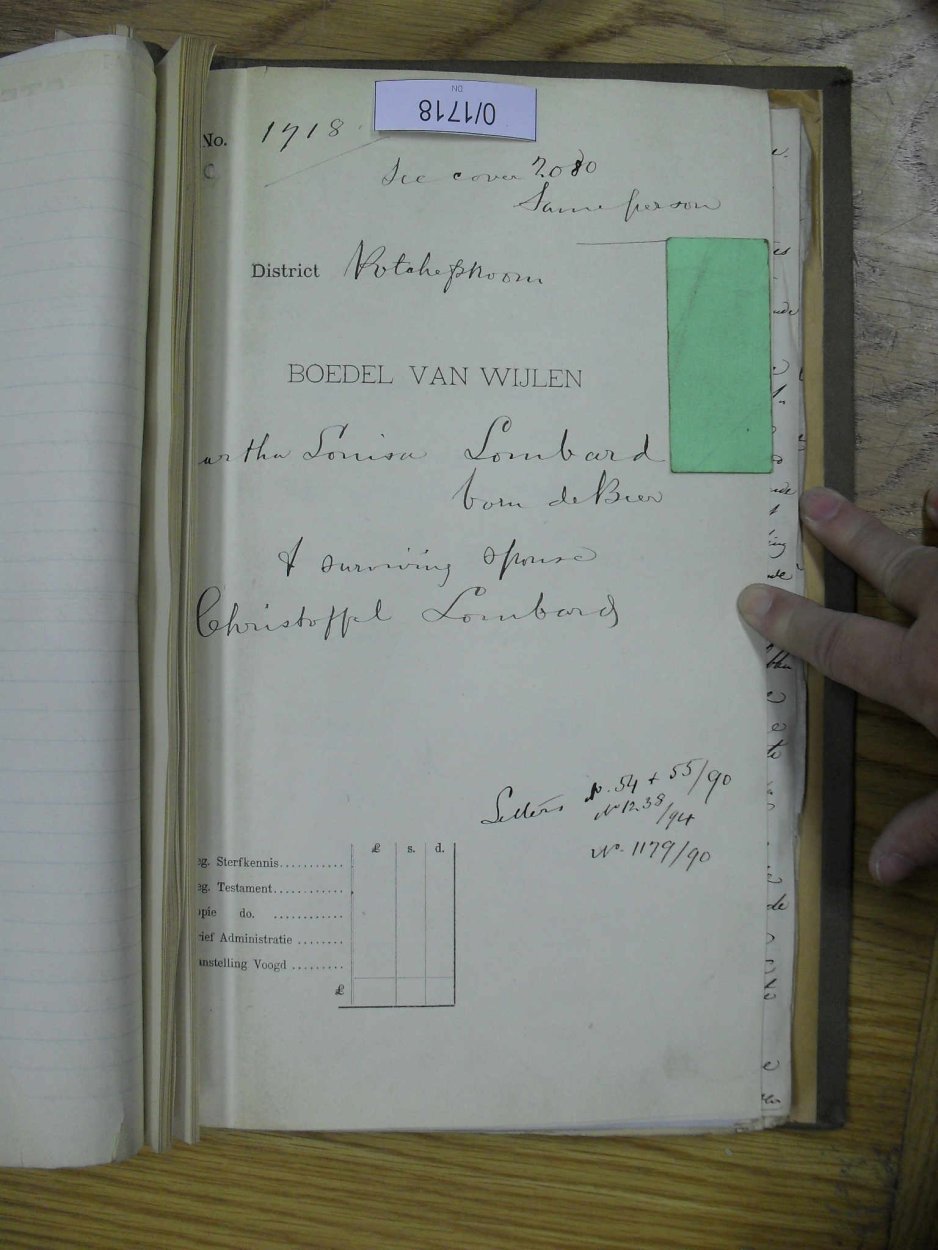 0/1718
DN
No. 1718
C
See cover 2080
Same person
District Potchefstroom
BOEDEL VAN WIJLEN
artha Louisa Lombard
born de Beer
& surviving spouse
Christoffel Lombard
Letters No. 54 + 55/90
No 1238/94
No. 1179/90
£ s. d.
eg. Sterfkennis............
eg. Testament............
opie do. ............
rief Administratie ........
anstelling Voogd .........
£